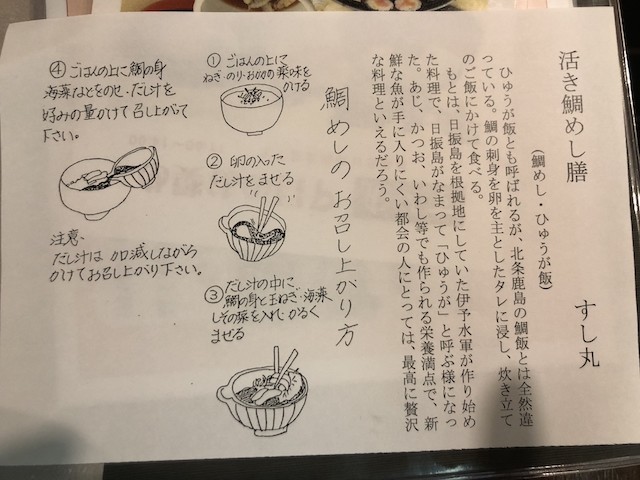 活き鯛めし膳
すし丸
(鯛めし・ひゅうが飯)
ひゅうが飯とも呼ばれるが、北条鹿島の鯛飯とは全然違
っている。鯛の刺身を卵を主としたタレに浸し、炊き立て
のご飯にかけて食べる。
もとは、日振島を根拠地にしていた伊予水軍が作り始め
た料理で、日振島がなまって「ひゅうが」と呼ぶ様になっ
た。あじ、かつお、いわし等でも作られる栄養満点で、新
鮮な魚が手に入りにくい都会の人にとっては、最高に贅沢
な料理といえるだろう。
鯛めしのお召し上がり方
① ごはんの上に
ねぎ・のり・おかかの薬味を
かける
② 卵の入った
だし汁をまぜる
③ だし汁の中に
鯛の身と玉ねぎ・海藻
しその葉を入れ・かるく
まぜる
④ ごはんの上に鯛の身
海藻などをのせ・だし汁を
好みの量かけて召し上がって
下さい。
注意・
だし汁は加減しながら
かけてお召し上がり下さい。